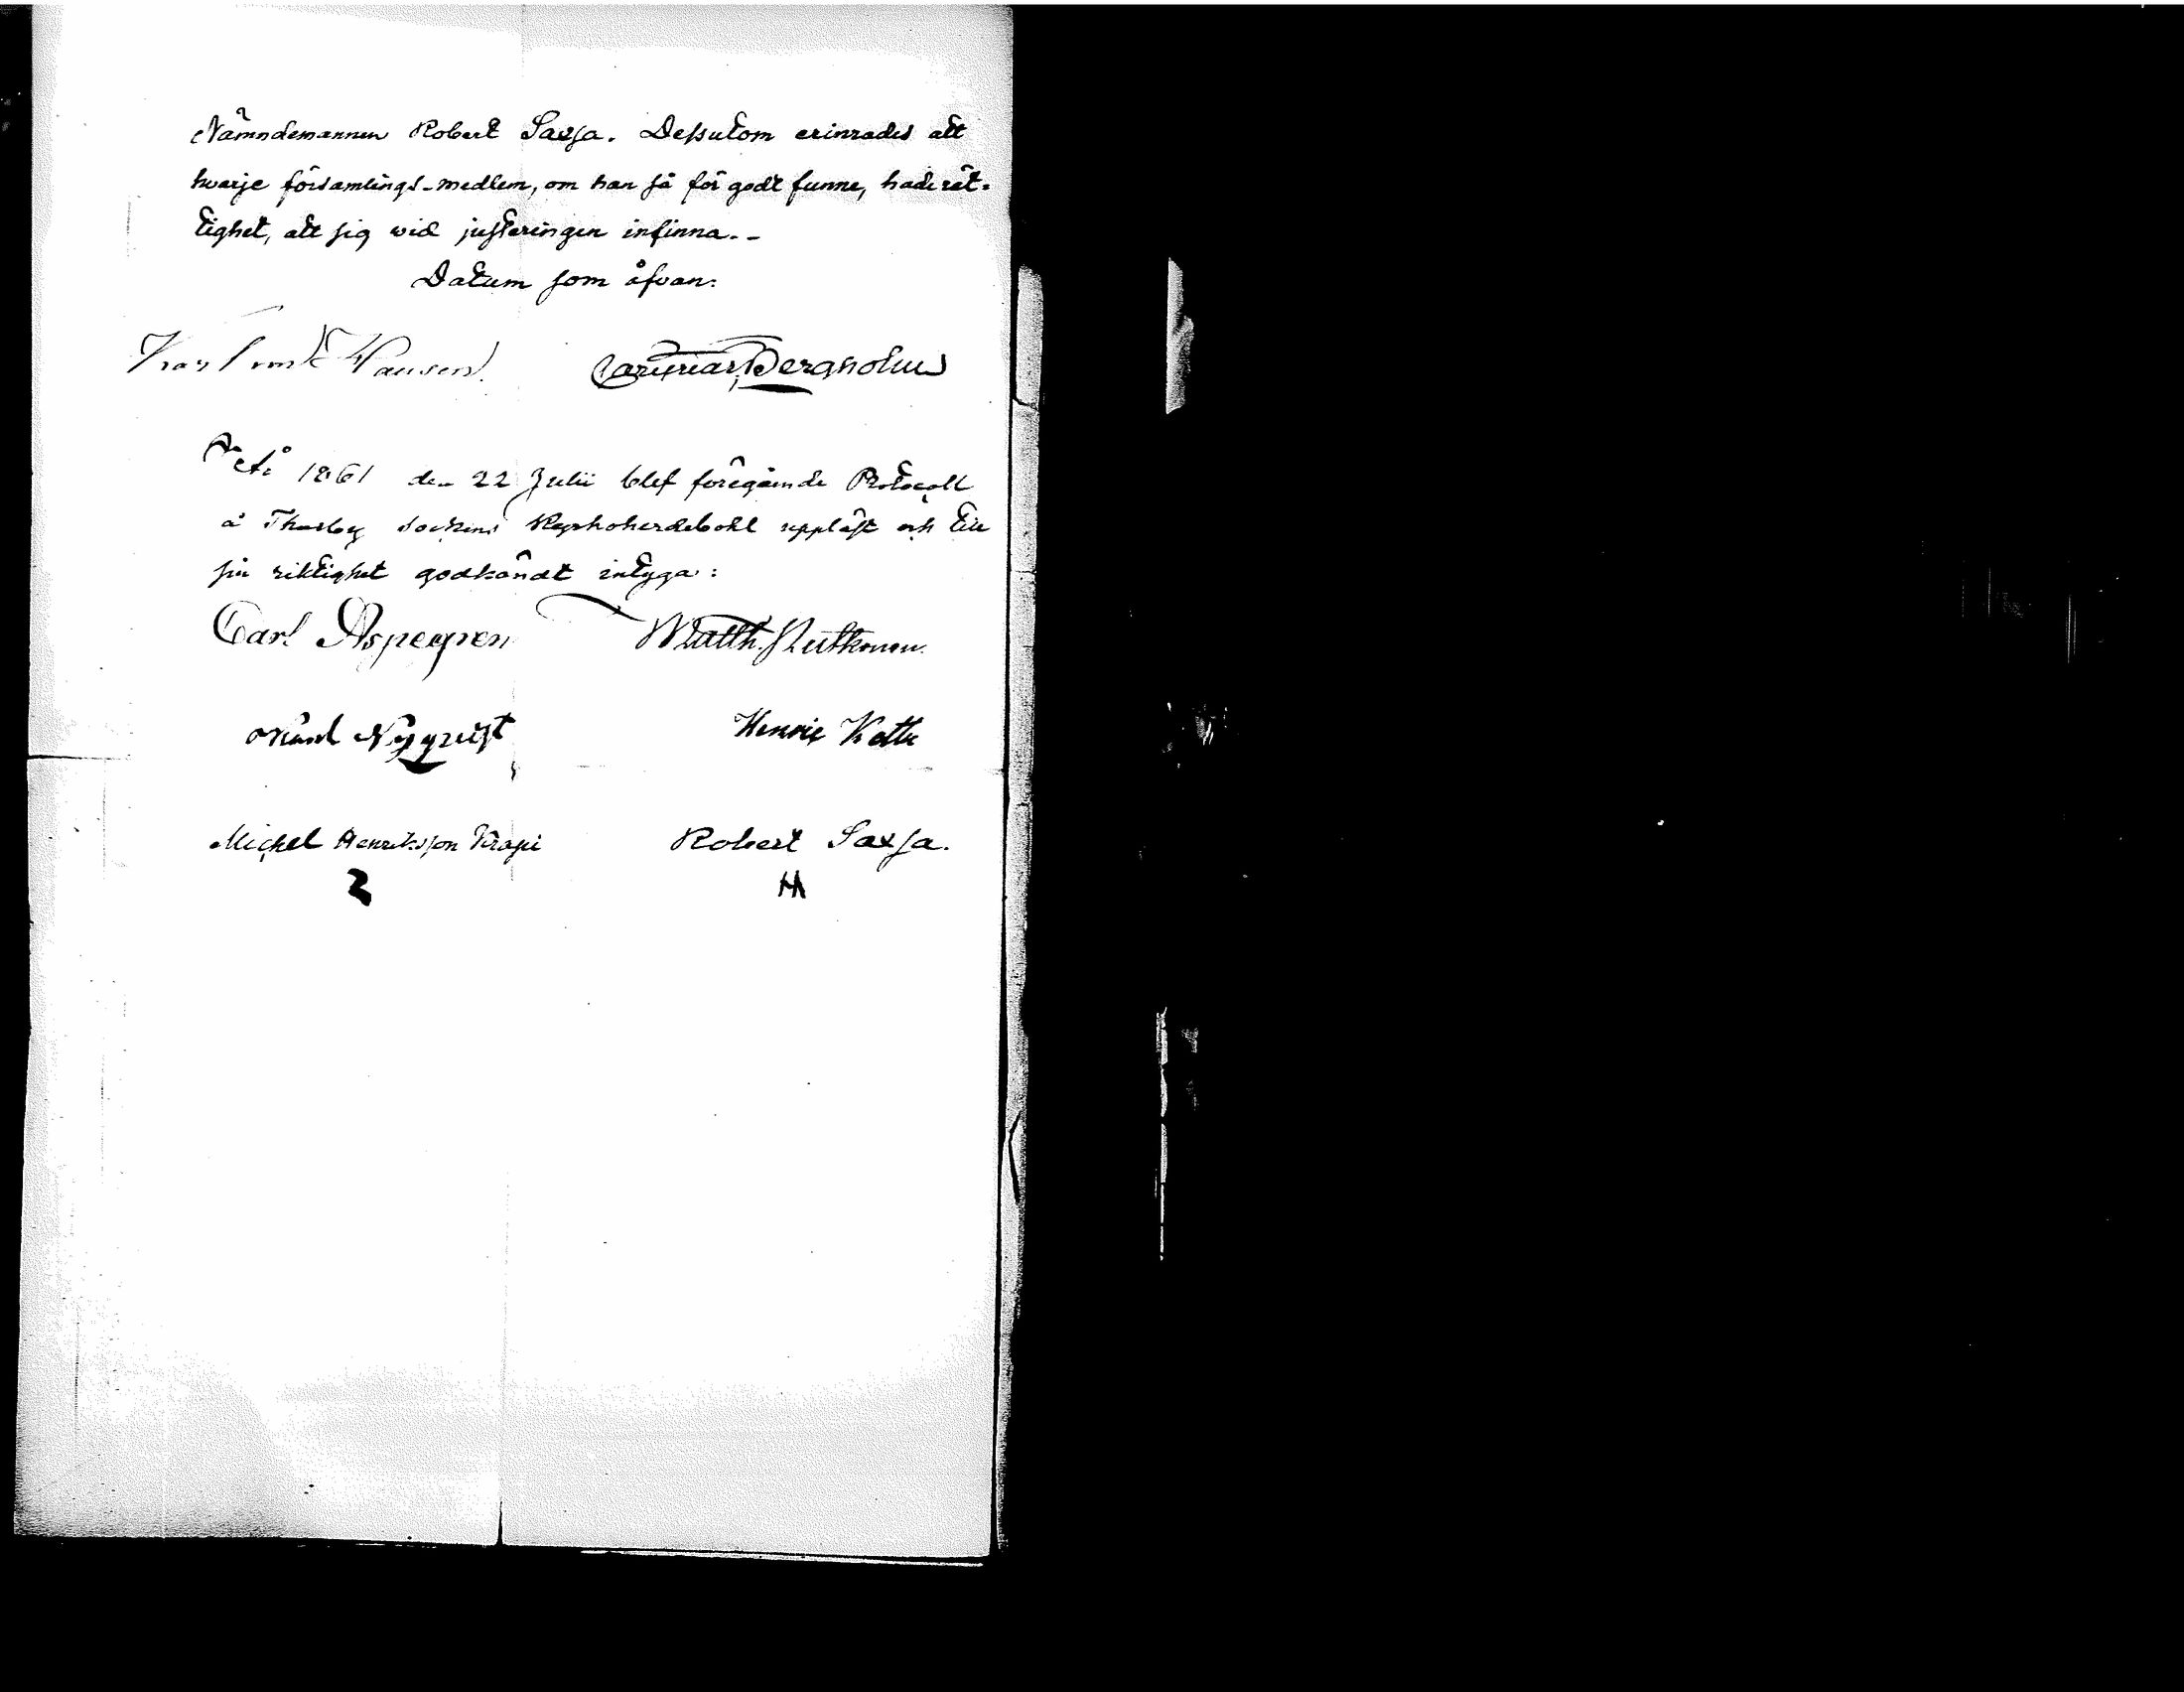 Nämndemannen Robert Saxsa. Dessutom erinrades att
hwarje församlings-medlem, om han så för godt funne, hade rät-
tighet, att sig wid justeringen infinna.-
Datum som åfvan:
Bergholm
År 1861 den 22 Julii blef föregående Protocoll
å Thusby Sockens Kyrkoherdebohl uppläst och till
sin riktighet godkändt intyga:
Carl Aspegren Matth. Nutkonen.
Nyqvist Henric
Michel Henriksson Robert Saxsa.